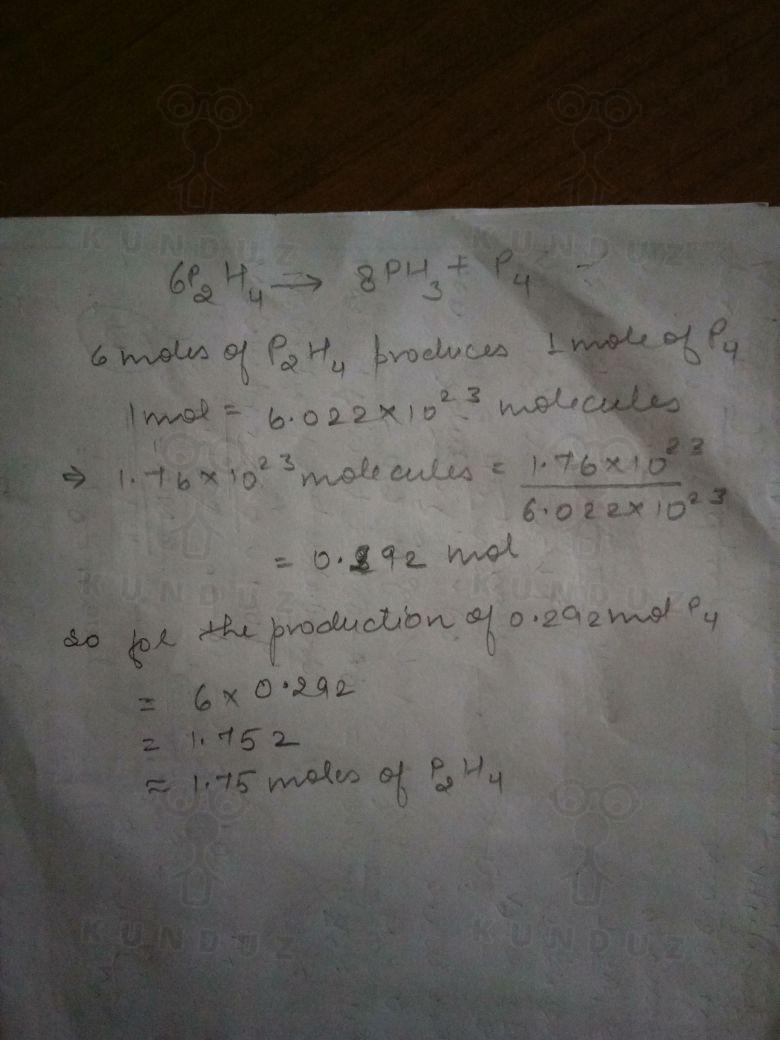 KUNDUZ KUNDUZ
6P₂H₄ → 8PH₃ + P₄
6 moles of P₂H₄ produces 1 mole of P₄
1mol = 6.022×10²³ molecules
⇒ 1.76×10²³ molecules = 1.76×10²³ / 6.022×10²³
= 0.292 mol
KUNDUZ KUNDUZ
so for the production of 0.292mol P₄
= 6 × 0.292
= 1.752
≈ 1.75 moles of P₂H₄
KUNDUZ KUNDUZ